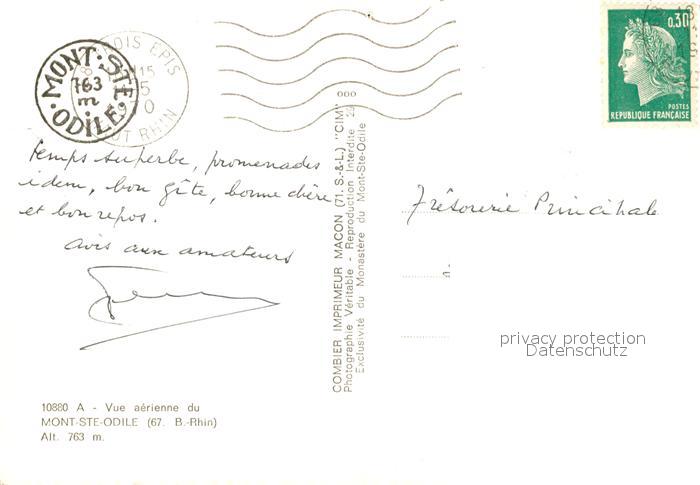 MONT-STE-ODILE
763
m
OIS EPIS
UT RHIN
0,30
POSTES
REPUBLIQUE FRANÇAISE
Temps superbe, promenades
idem, bon gîte, bonne chère
et bon repos.
Avis aux amateurs
Trésorerie Principale
COMBIER IMPRIMEUR MACON (71. S.-&-L.) "CIM"
Photographie Véritable - Reproduction Interdite
Exclusivité du Monastère du Mont-Ste-Odile
privacy protection
Datenschutz
10880 A - Vue aérienne du
MONT-STE-ODILE (67. B.-Rhin)
Alt. 763 m.